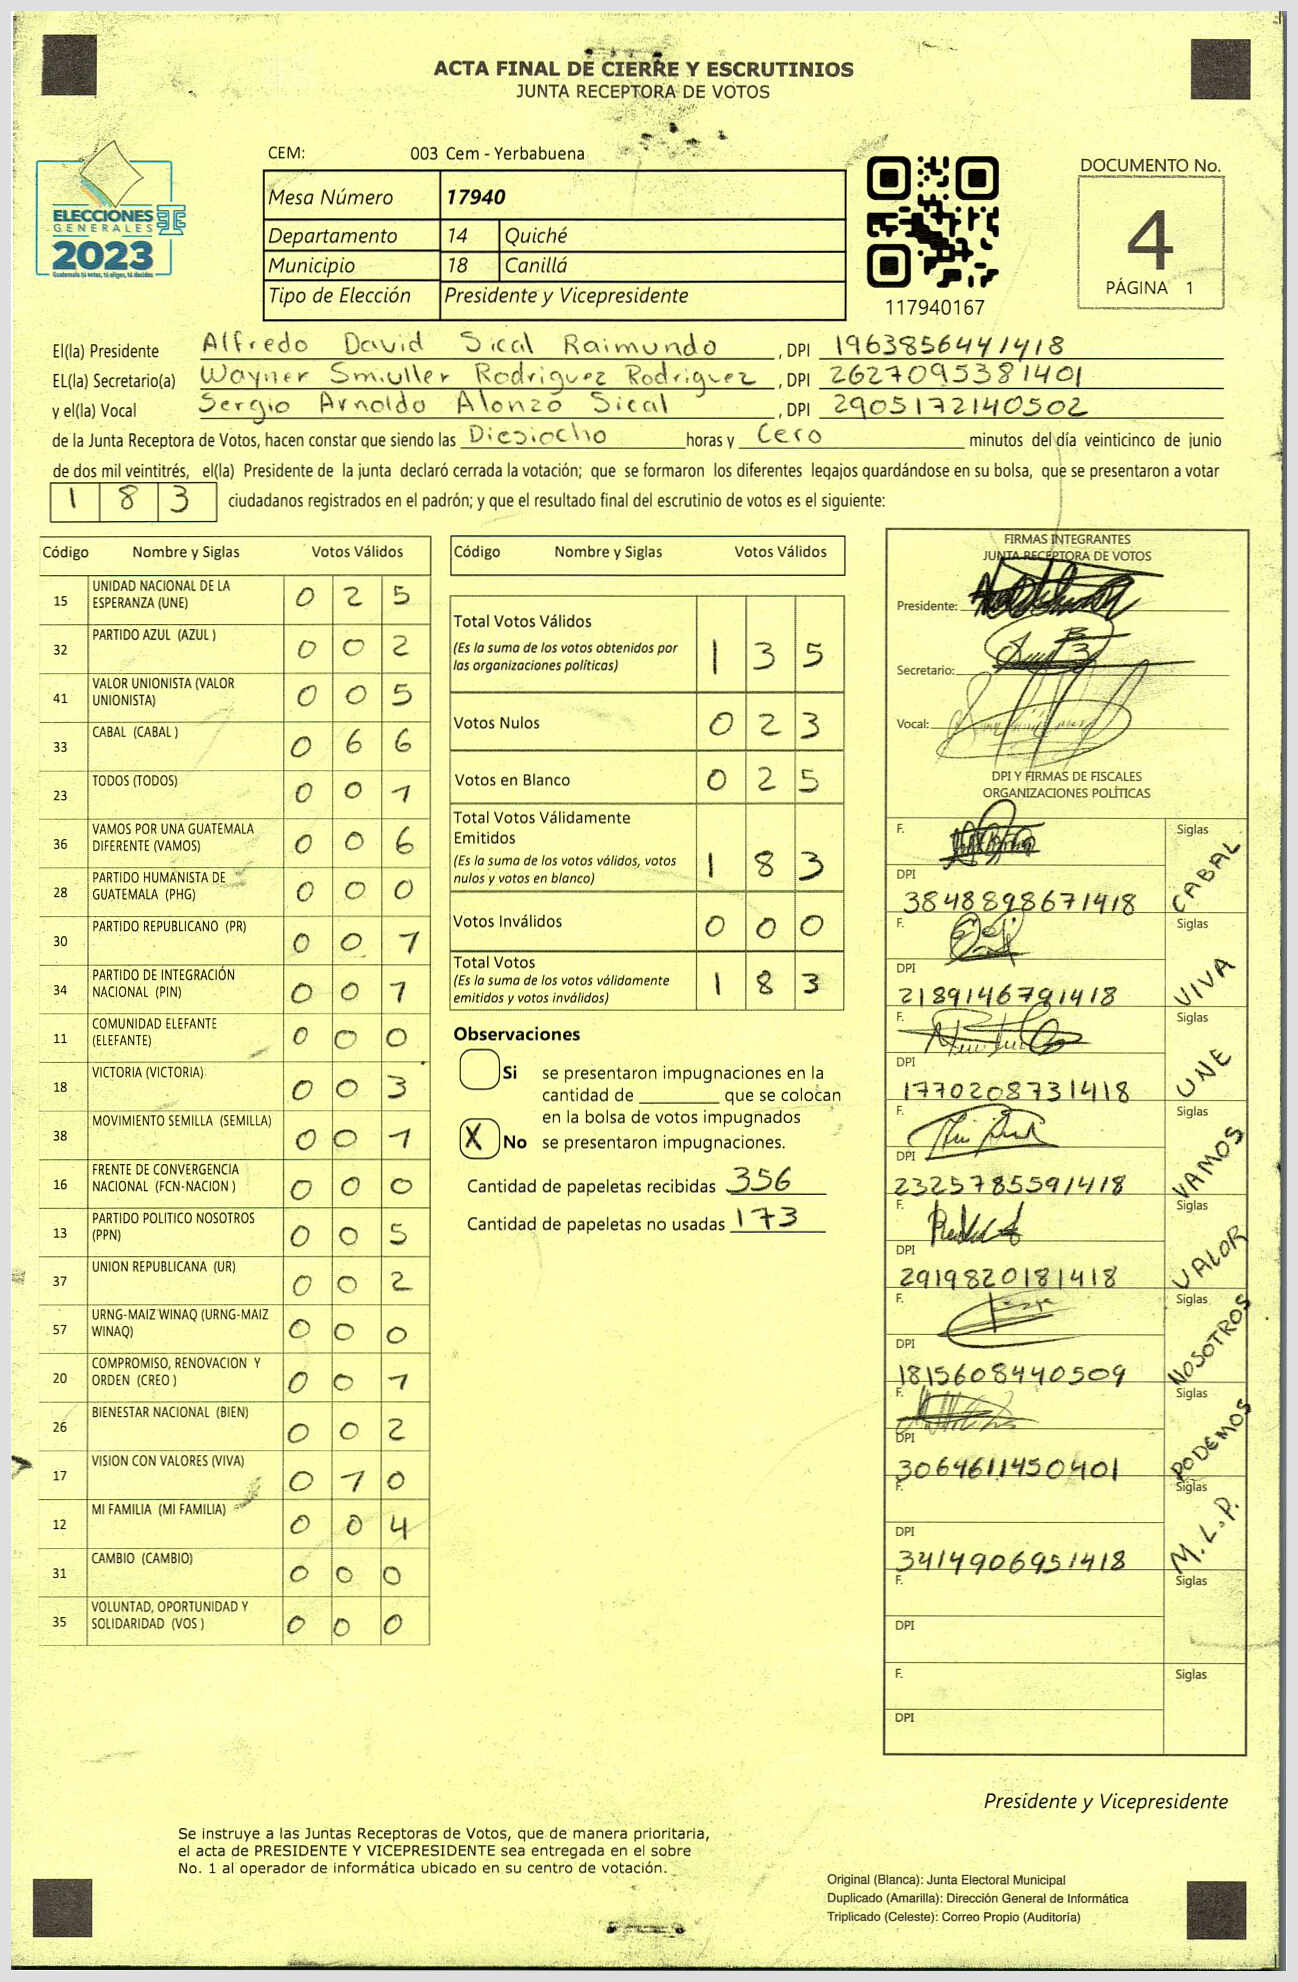 ACTA FINAL DE CIERRE Y ESCRUTINIOS
JUNTA RECEPTORA DE VOTOS
ELECCIONES
GENERALES
2023
Guatemala tú votas, tú eliges, tú decides
CEM: 003 Cem - Yerbabuena
Mesa Número 17940
Departamento 14 Quiché
Municipio 18 Canillá
Tipo de Elección Presidente y Vicepresidente
117940167
DOCUMENTO No.
4
PÁGINA 1
El(la) Presidente Alfredo David Sical Raimundo , DPI 1963856441418
EL(la) Secretario(a) Wayner Smiuller Rodriguez Rodriguez , DPI 2627095381401
y el(la) Vocal Sergio Arnoldo Alonzo Sical , DPI 2905172140502
de la Junta Receptora de Votos, hacen constar que siendo las Diesiocho horas y Cero minutos del día veinticinco de junio
de dos mil veintitrés, el(la) Presidente de la junta declaró cerrada la votación; que se formaron los diferentes legajos guardándose en su bolsa, que se presentaron a votar
1 8 3 ciudadanos registrados en el padrón; y que el resultado final del escrutinio de votos es el siguiente:
Código Nombre y Siglas Votos Válidos
15 UNIDAD NACIONAL DE LA ESPERANZA (UNE) 0 2 5
32 PARTIDO AZUL (AZUL ) 0 0 2
41 VALOR UNIONISTA (VALOR UNIONISTA) 0 0 5
33 CABAL (CABAL ) 0 6 6
23 TODOS (TODOS) 0 0 1
36 VAMOS POR UNA GUATEMALA DIFERENTE (VAMOS) 0 0 6
28 PARTIDO HUMANISTA DE GUATEMALA (PHG) 0 0 0
30 PARTIDO REPUBLICANO (PR) 0 0 1
34 PARTIDO DE INTEGRACIÓN NACIONAL (PIN) 0 0 1
11 COMUNIDAD ELEFANTE (ELEFANTE) 0 0 0
18 VICTORIA (VICTORIA) 0 0 3
38 MOVIMIENTO SEMILLA (SEMILLA) 0 0 1
16 FRENTE DE CONVERGENCIA NACIONAL (FCN-NACION ) 0 0 0
13 PARTIDO POLITICO NOSOTROS (PPN) 0 0 5
37 UNION REPUBLICANA (UR) 0 0 2
57 URNG-MAIZ WINAQ (URNG-MAIZ WINAQ) 0 0 0
20 COMPROMISO, RENOVACION Y ORDEN (CREO ) 0 0 1
26 BIENESTAR NACIONAL (BIEN) 0 0 2
17 VISION CON VALORES (VIVA) 0 1 0
12 MI FAMILIA (MI FAMILIA) 0 0 4
31 CAMBIO (CAMBIO) 0 0 0
35 VOLUNTAD, OPORTUNIDAD Y SOLIDARIDAD (VOS ) 0 0 0
Código Nombre y Siglas Votos Válidos
Total Votos Válidos
(Es la suma de los votos obtenidos por
las organizaciones políticas) 1 3 5
Votos Nulos 0 2 3
Votos en Blanco 0 2 5
Total Votos Válidamente
Emitidos
(Es la suma de los votos válidos, votos
nulos y votos en blanco) 1 8 3
Votos Inválidos 0 0 0
Total Votos
(Es la suma de los votos válidamente
emitidos y votos inválidos) 1 8 3
Observaciones
Si se presentaron impugnaciones en la
cantidad de ________ que se colocan
en la bolsa de votos impugnados
X No se presentaron impugnaciones.
Cantidad de papeletas recibidas 356
Cantidad de papeletas no usadas 173
FIRMAS INTEGRANTES
JUNTA RECEPTORA DE VOTOS
Presidente:
Secretario:
Vocal:
DPI Y FIRMAS DE FISCALES
ORGANIZACIONES POLÍTICAS
F. Siglas CABAL
DPI 3848898671418
F. Siglas VIVA
DPI 2189146791418
F. Siglas UNE
DPI 1770208731418
F. Siglas VAMOS
DPI 2325785591418
F. Siglas VALOR
DPI 2919820181418
F. Siglas NOSOTROS
DPI 1815608440509
F. Siglas PODEMOS
DPI 3064611450401
F. Siglas M.L.P.
DPI 3414906951418
F. Siglas
DPI
F. Siglas
DPI
Presidente y Vicepresidente
Se instruye a las Juntas Receptoras de Votos, que de manera prioritaria,
el acta de PRESIDENTE Y VICEPRESIDENTE sea entregada en el sobre
No. 1 al operador de informática ubicado en su centro de votación.
Original (Blanca): Junta Electoral Municipal
Duplicado (Amarilla): Dirección General de Informática
Triplicado (Celeste): Correo Propio (Auditoría)